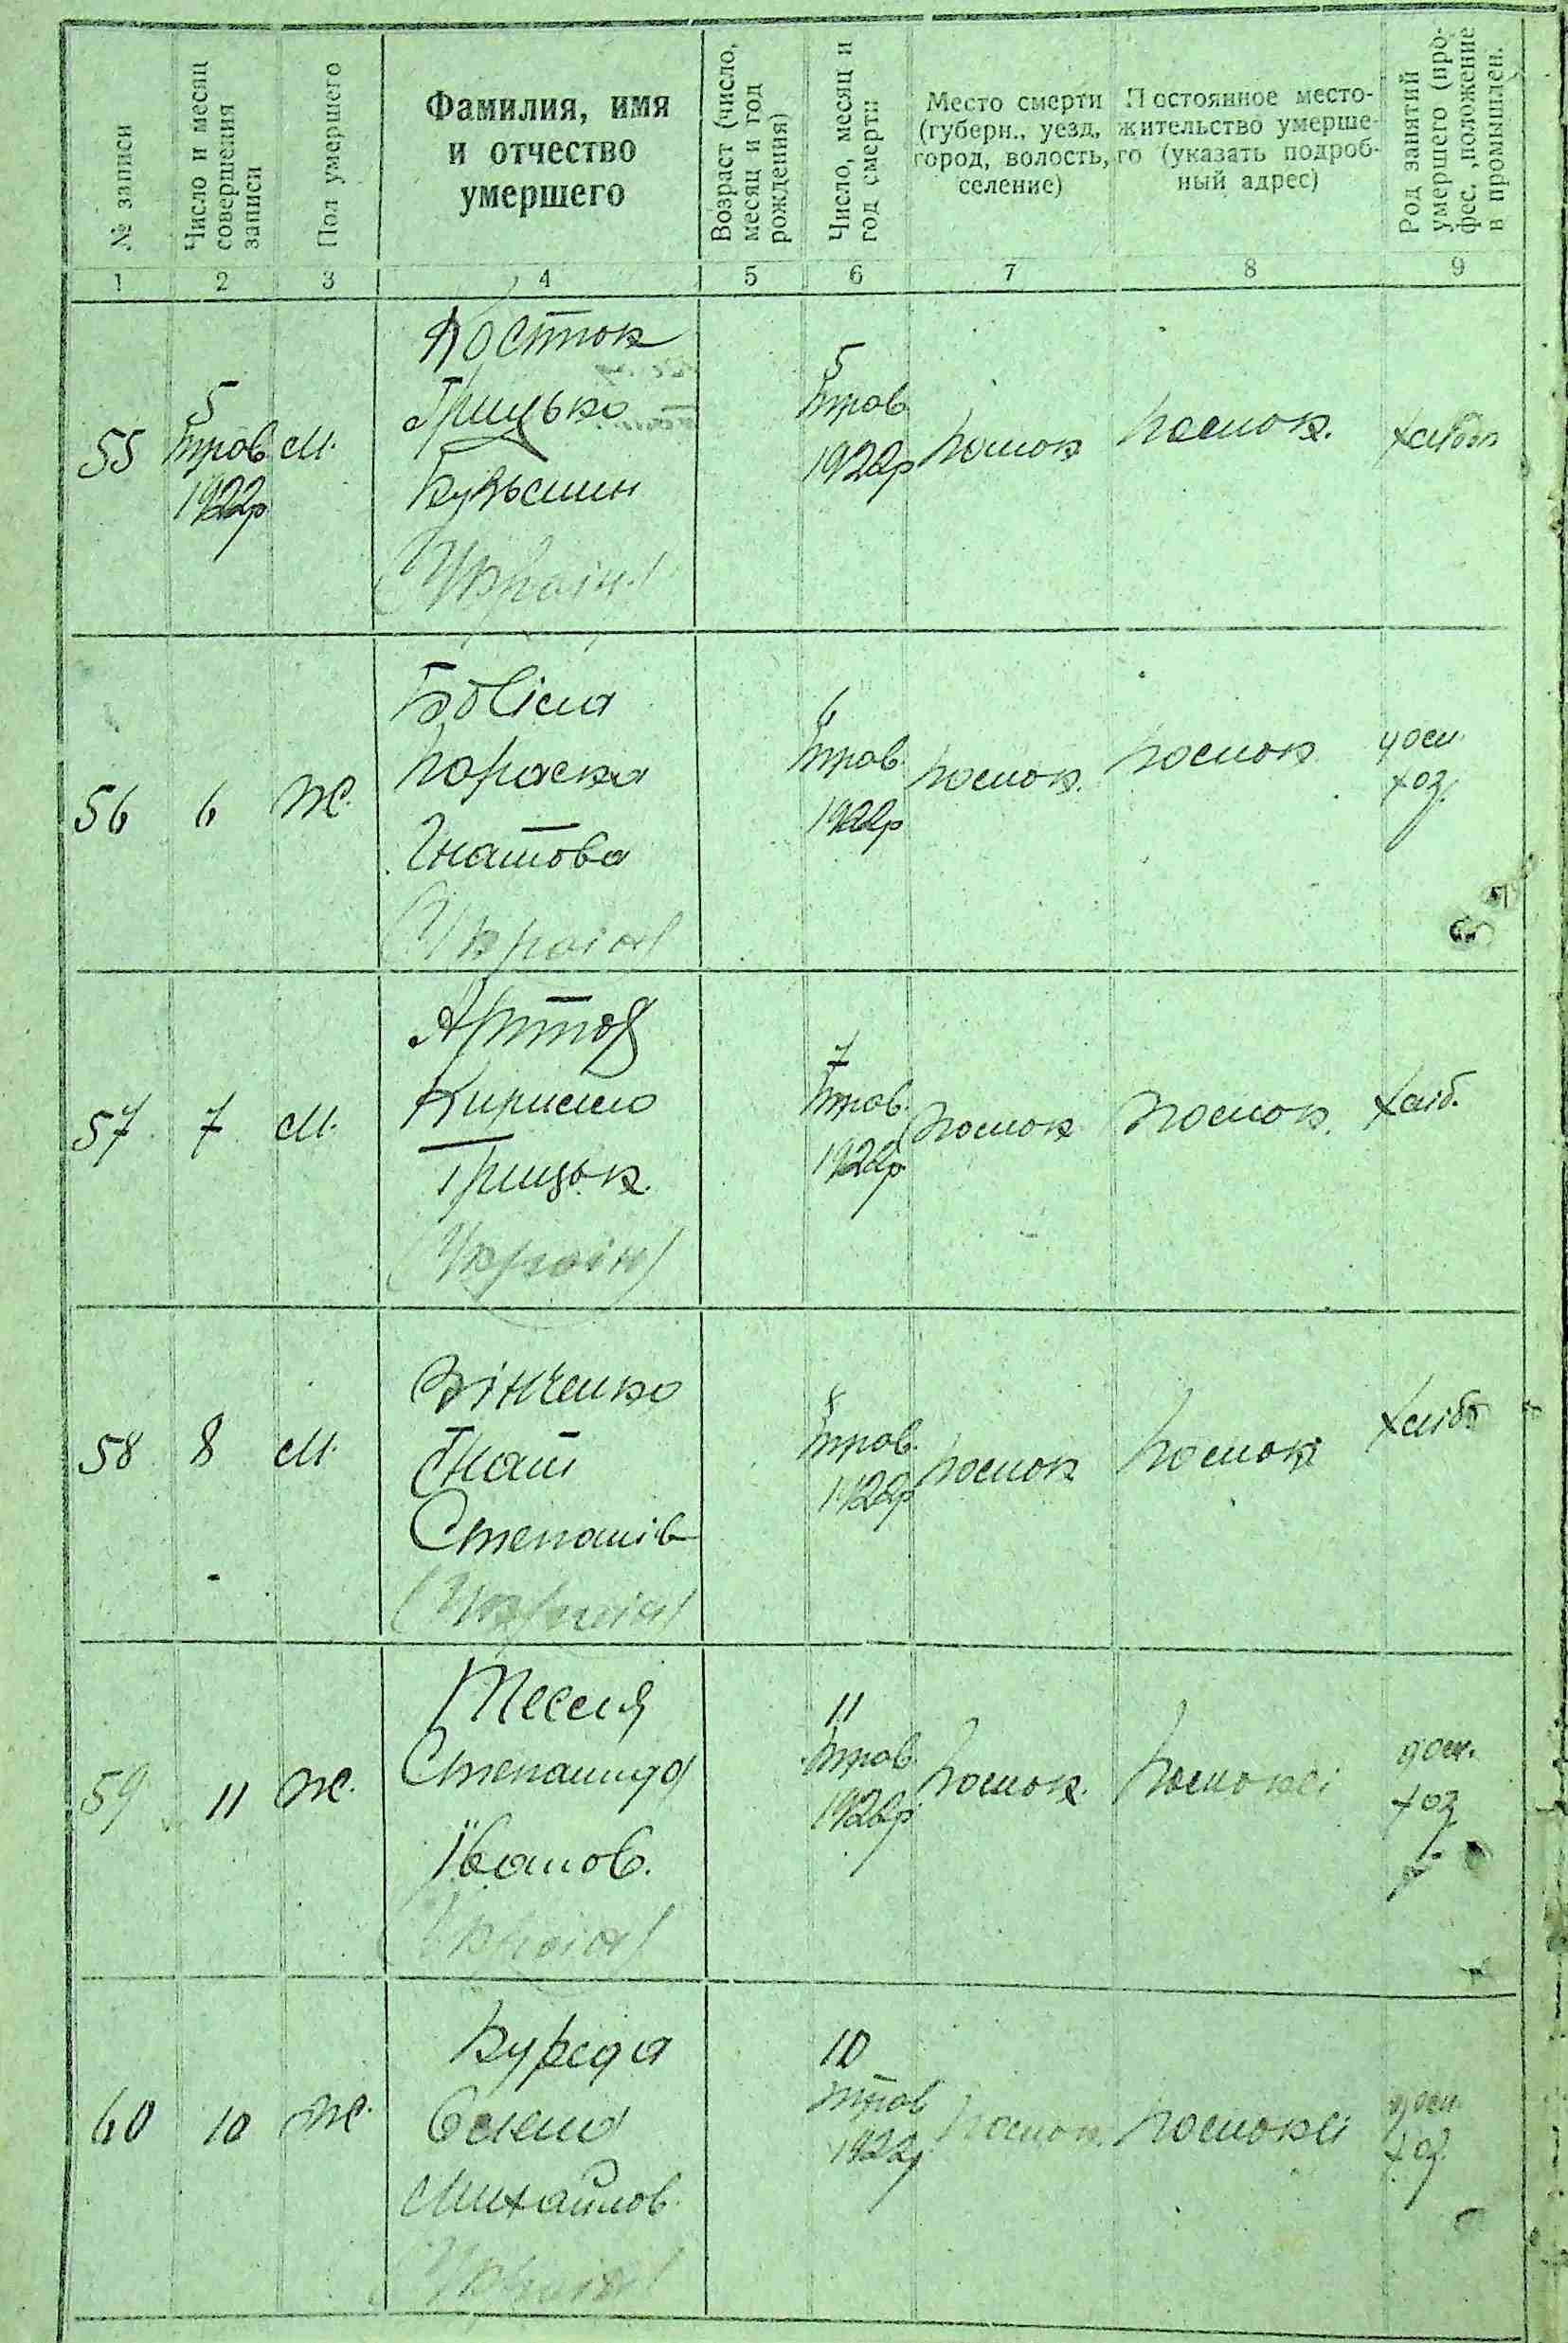 № записи
Число и месяц
совершения
записи
Пол умершего
Фамилия, имя
и отчество
умершего
Возраст (число,
месяц и год
рождения)
Число, месяц и
год смерти
Место смерти
(губерн., уезд,
город, волость,
селение)
Постоянное место-
жительство умерше-
го (указать подроб-
ный адрес)
Род занятий
умершего (про-
фес., положение
в промышлен.
1 2 3 4 5 6 7 8 9
55
5
трав.
1922р
м.
Косток
Грицько
Кузьмин
(Україн.)
5
трав
1922р
56
6
ж.
Параска
Гнатова
(Україн)
6
трав.
1922р
дом.
хоз.
57
7
м.
Кирило
Грицьк.
(Україн)
7
трав.
1922р
хліб.
58
8
м.
Вінченко
Гнат
Степанів
(Україн)
8
трав.
1922р
хліб
59
11
ж.
Тесля
Степанида
Іванов.
(Україн)
11
трав.
1922р
дом.
хоз
60
10
ж.
Курєда
Олена
Михайлов.
(Україн)
10
трав
1922р
дом.
хоз.